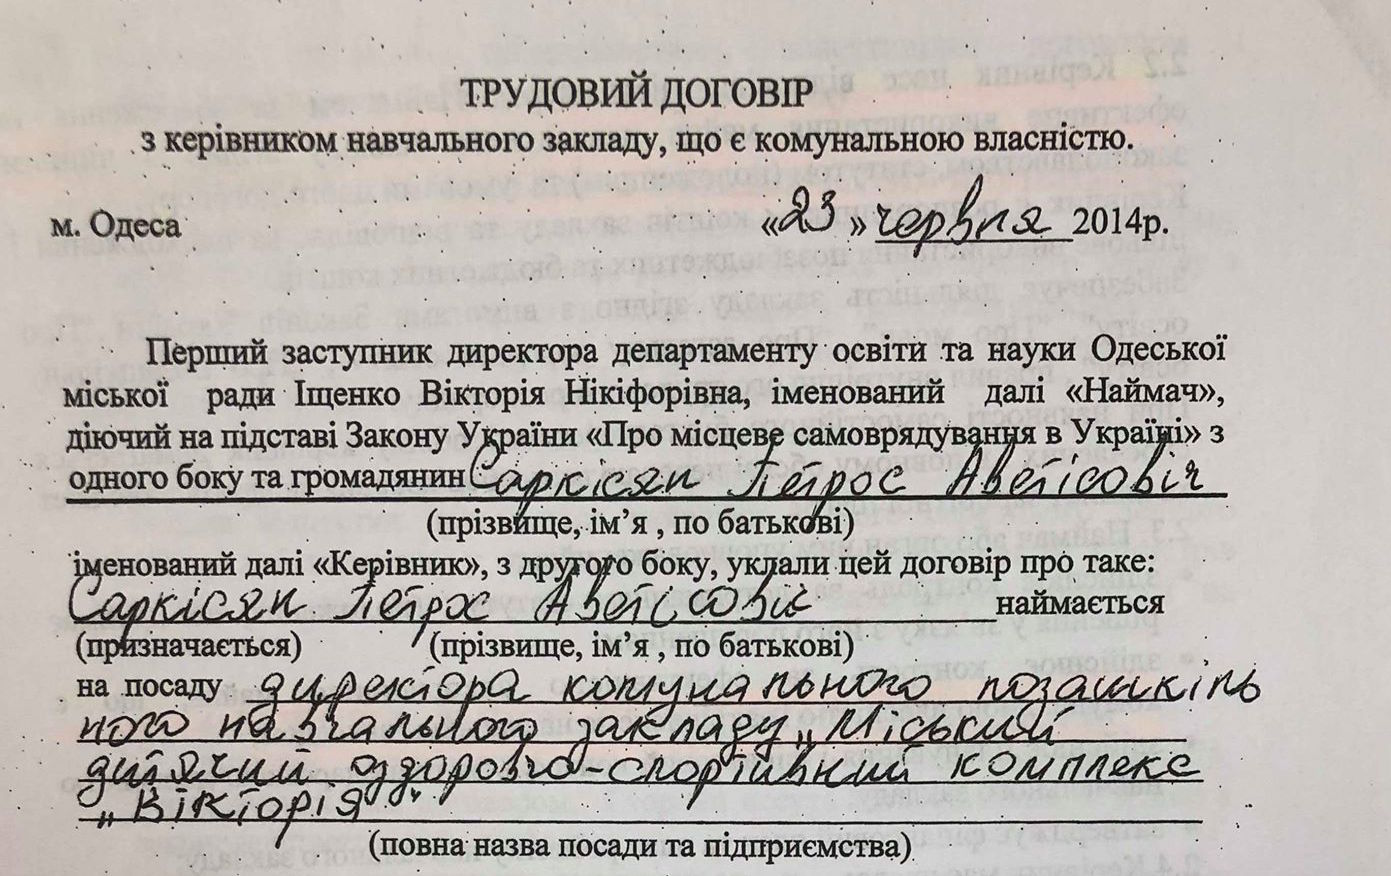 ТРУДОВИЙ ДОГОВІР
з керівником навчального закладу, що є комунальною власністю.
м. Одеса «23» червня 2014р.
Перший заступник директора департаменту освіти та науки Одеської
міської ради Іщенко Вікторія Нікіфорівна, іменований далі «Наймач»,
діючий на підставі Закону України «Про місцеве самоврядування в Україні» з
одного боку та громадянин Саркісян Петрос Аветісовіч
(прізвище, ім’я , по батькові)
іменований далі «Керівник», з другого боку, уклали цей договір про таке:
Саркісян Петрос Аветісовіч наймається
(призначається) (прізвище, ім’я , по батькові)
на посаду директора комунального позашкіль
ного навчального закладу „Міський
дитячий оздоровчо-спортивний комплекс
„Вікторія"
(повна назва посади та підприємства)